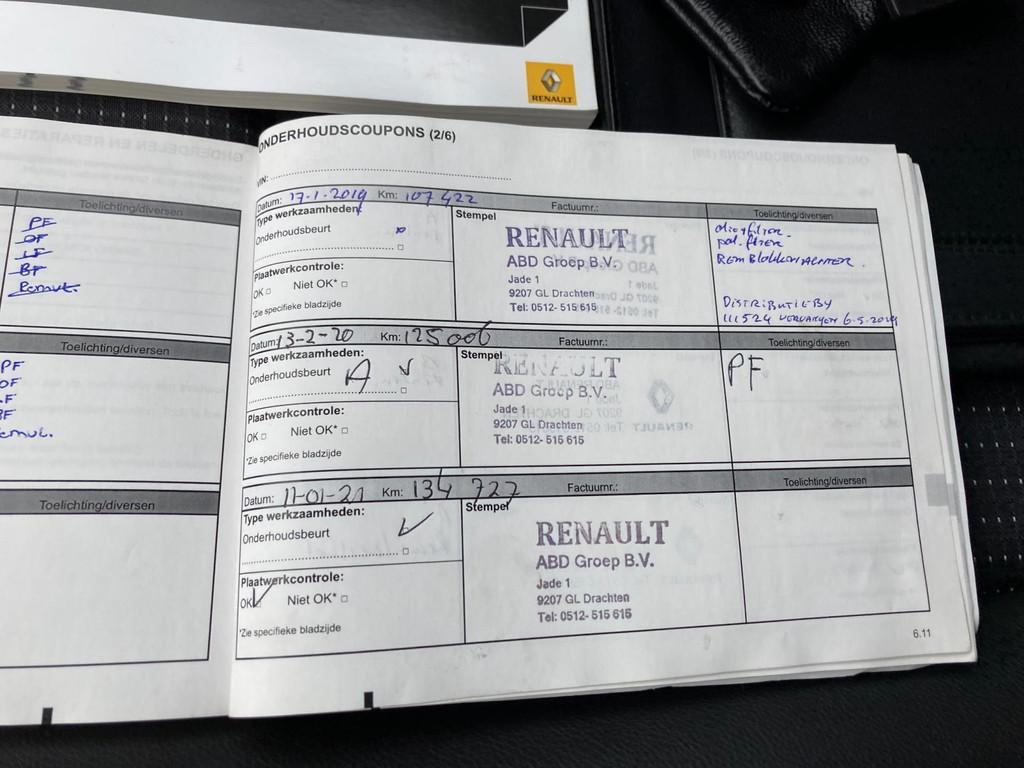 RENAULT
Toelichting/diversen
PF
OF
LF
BF
Remvl.
Toelichting/diversen
PF
OF
.F
Toelichting/diversen
ONDERHOUDSCOUPONS (2/6)
VIN:
Datum: 17-1-2019 Km: 107 422 Factuurnr.: Toelichting/diversen
Type werkzaamheden:
Onderhoudsbeurt
Plaatwerkcontrole:
OK □ Niet OK* □
*Zie specifieke bladzijde
Stempel
RENAULT
ABD Groep B.V.
Jade 1
9207 GL Drachten
Tel: 0512- 515 615
oliefilter.
pol. filter
REM Blokken ACHTER.
DISTRIBUTIE BY
111524 VERVANGEN 6-5-2019
Datum: 13-2-20 Km: 125006 Factuurnr.: Toelichting/diversen
Type werkzaamheden:
Onderhoudsbeurt A ✓
Plaatwerkcontrole:
OK □ Niet OK* □
*Zie specifieke bladzijde
Stempel
RENAULT
ABD Groep B.V.
Jade 1
9207 GL Drachten
Tel: 0512- 515 615
PF
Datum: 11-01-21 Km: 134 727 Factuurnr.: Toelichting/diversen
Type werkzaamheden:
Onderhoudsbeurt ✓
Plaatwerkcontrole:
OK ✓ Niet OK* □
*Zie specifieke bladzijde
Stempel
RENAULT
ABD Groep B.V.
Jade 1
9207 GL Drachten
Tel: 0512- 515 615
6.11